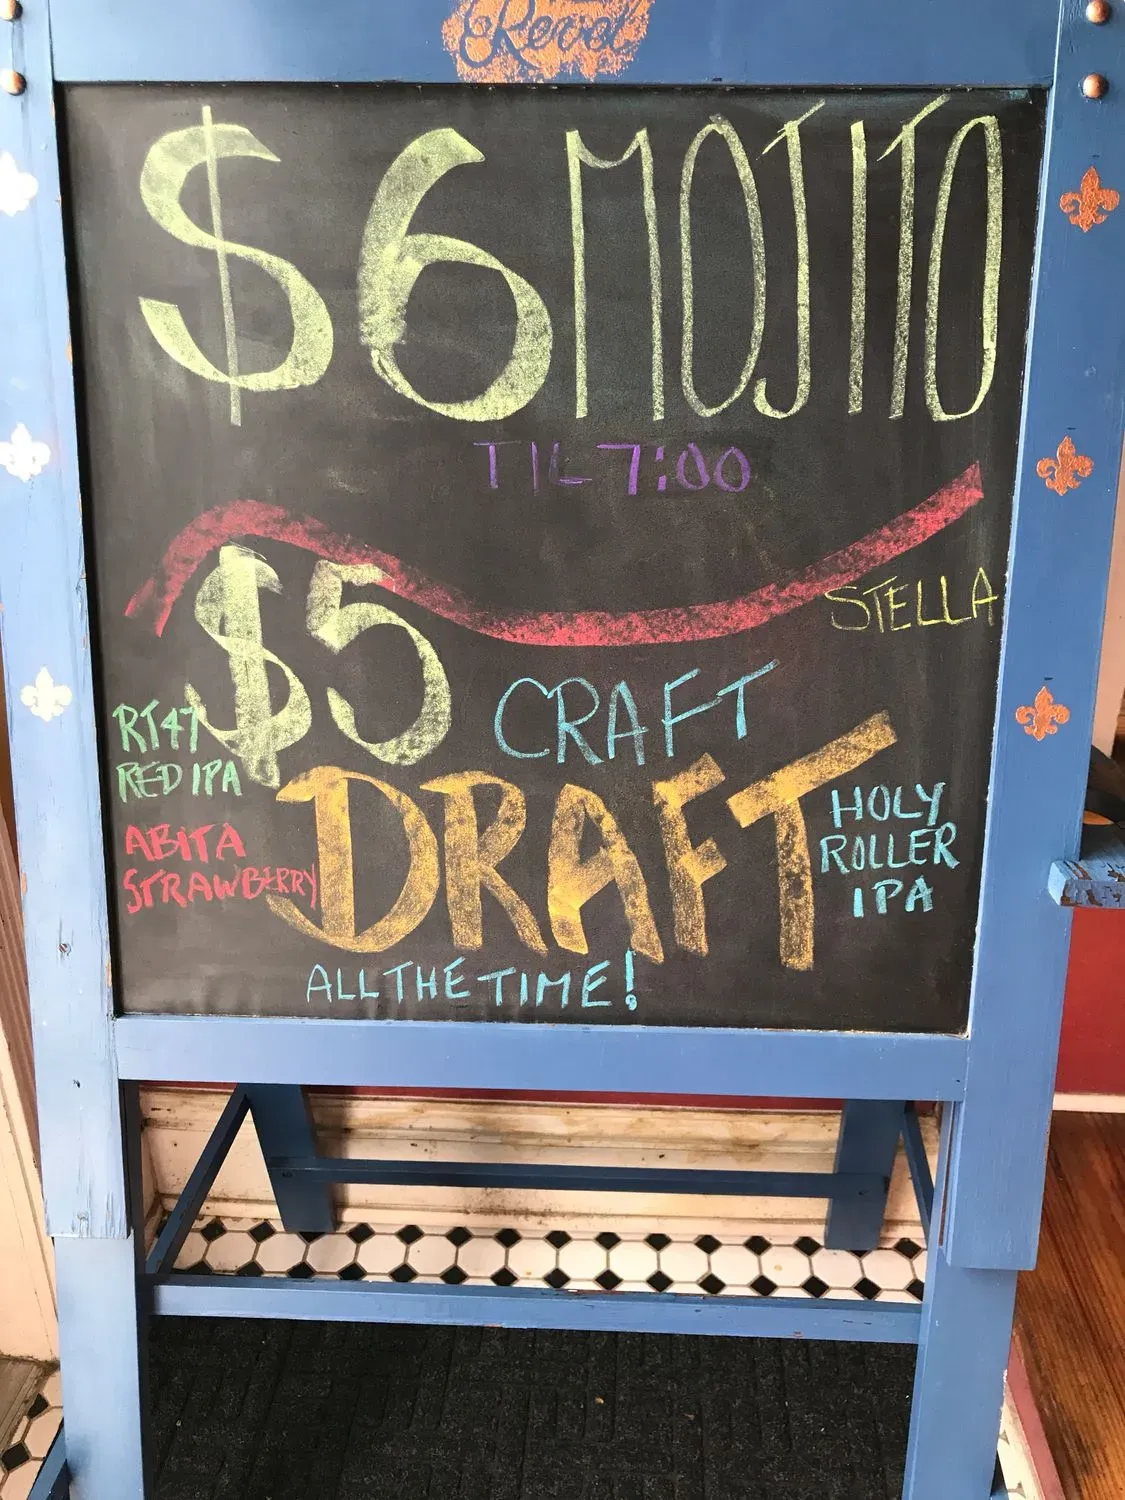 Revel
$6 MOJITO
TIL 7:00
$5 CRAFT
DRAFT
STELLA
RT47
RED IPA
ABITA
STRAWBERRY
HOLY
ROLLER
IPA
ALL THE TIME!